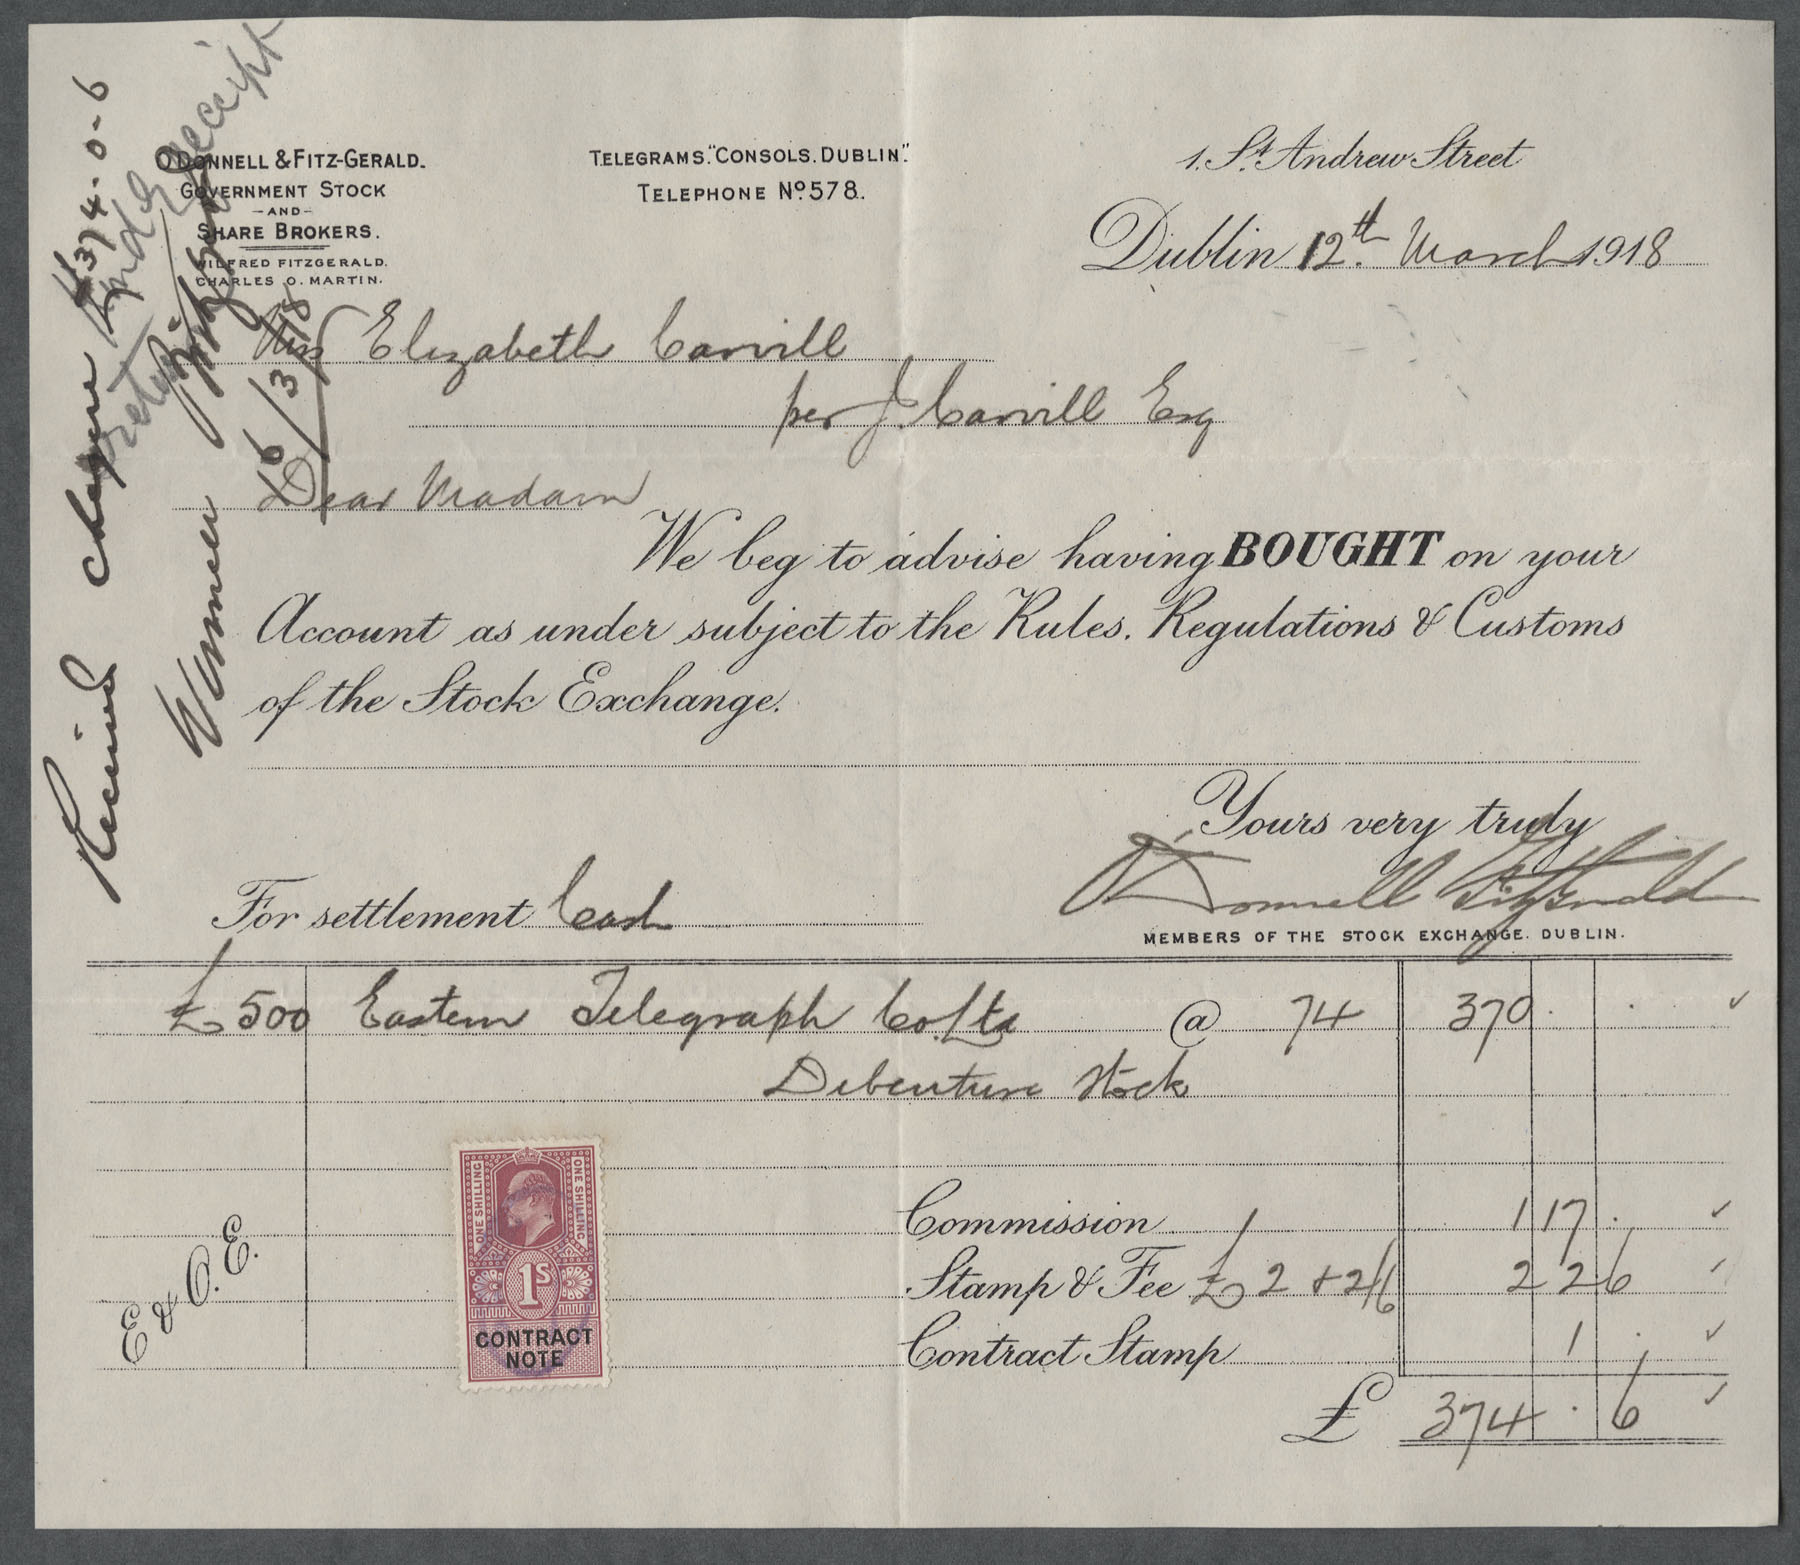 O'DONNELL & FITZ-GERALD.
GOVERNMENT STOCK
-AND-
SHARE BROKERS.
WILFRED FITZGERALD.
CHARLES O. MARTIN.
TELEGRAMS. "CONSOLS. DUBLIN".
TELEPHONE No. 578.
1. St. Andrew Street
Dublin 12th. March 1918
Miss Elizabeth Carvill
per J. Carvill Esq
Dear Madam
We beg to advise having BOUGHT on your
Account as under subject to the Rules. Regulations & Customs
of the Stock Exchange.
Yours very truly
O'Donnell Fitzgerald
MEMBERS OF THE STOCK EXCHANGE. DUBLIN.
For settlement Cash
£500 Eastern Telegraph Co. Ltd @ 74 370 . .
Debenture Stock
Commission 1 17 .
Stamp & Fee £2 & 2/6 2 2 6
Contract Stamp 1 .
£ 374 . 6
E & O. E.
ONE SHILLING
ONE SHILLING
1S
CONTRACT
NOTE
Received cheque £374-0-6
receipt
16/3/18